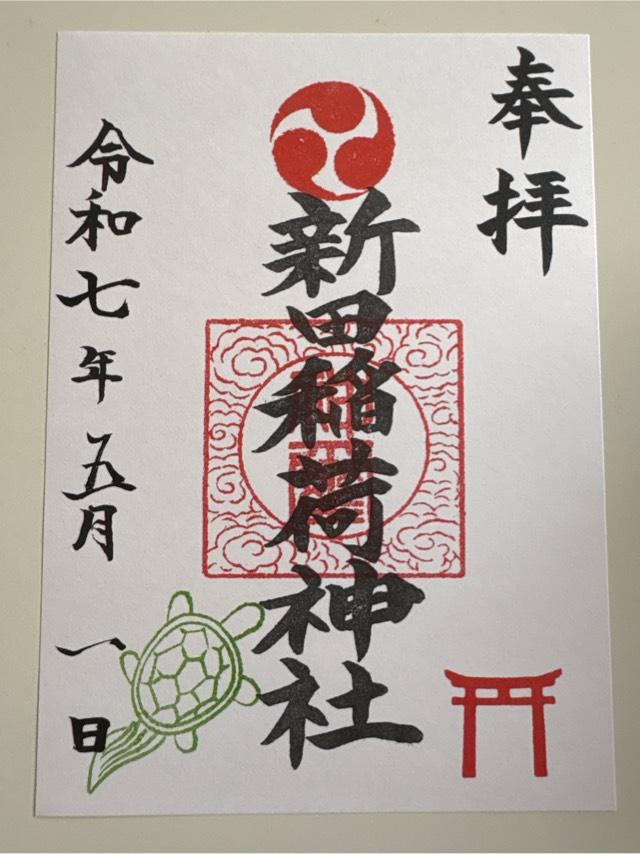 奉拝
新田稲荷神社
令和七年五月一日